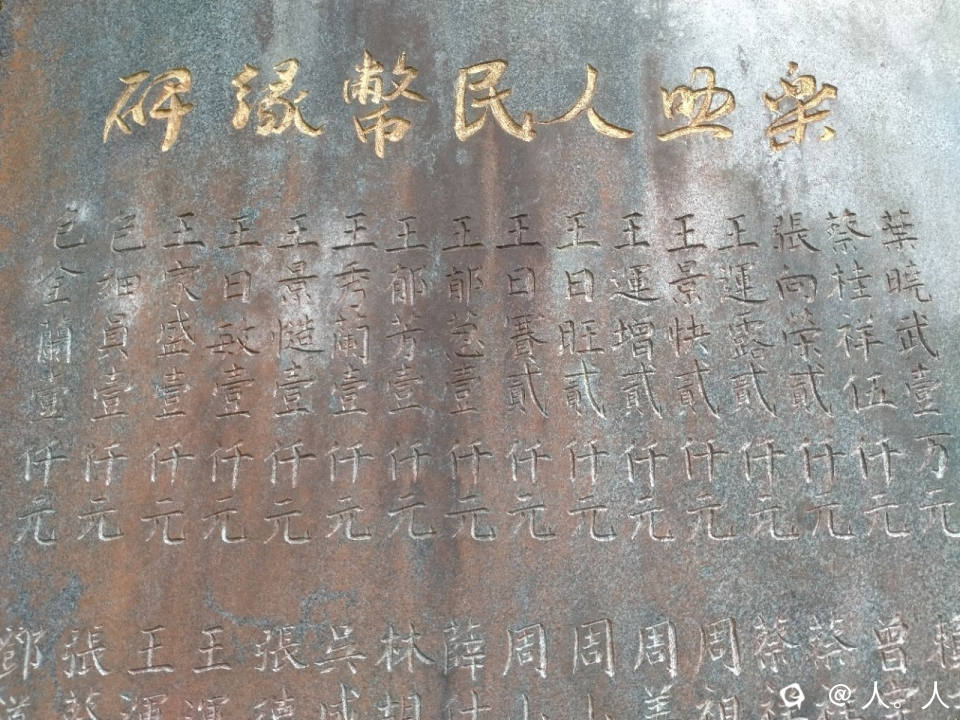 乐助人民幣緣碑
葉曉武壹万元
蔡桂祥伍仟元
張向荣貳仟元
王運露貳仟元
王景快貳仟元
王運增貳仟元
王日旺貳仟元
王日賽貳仟元
王郁葱壹仟元
王郁芳壹仟元
王秀蘭壹仟元
王景慥壹仟元
王日敏壹仟元
王家盛壹仟元
包细員壹仟元
包全蘭壹仟元
曾
蔡
蔡
周祖
周美
周小
周小
薛仕
林胡
吳成
張德
王運
王運
張
鄧
@人。人